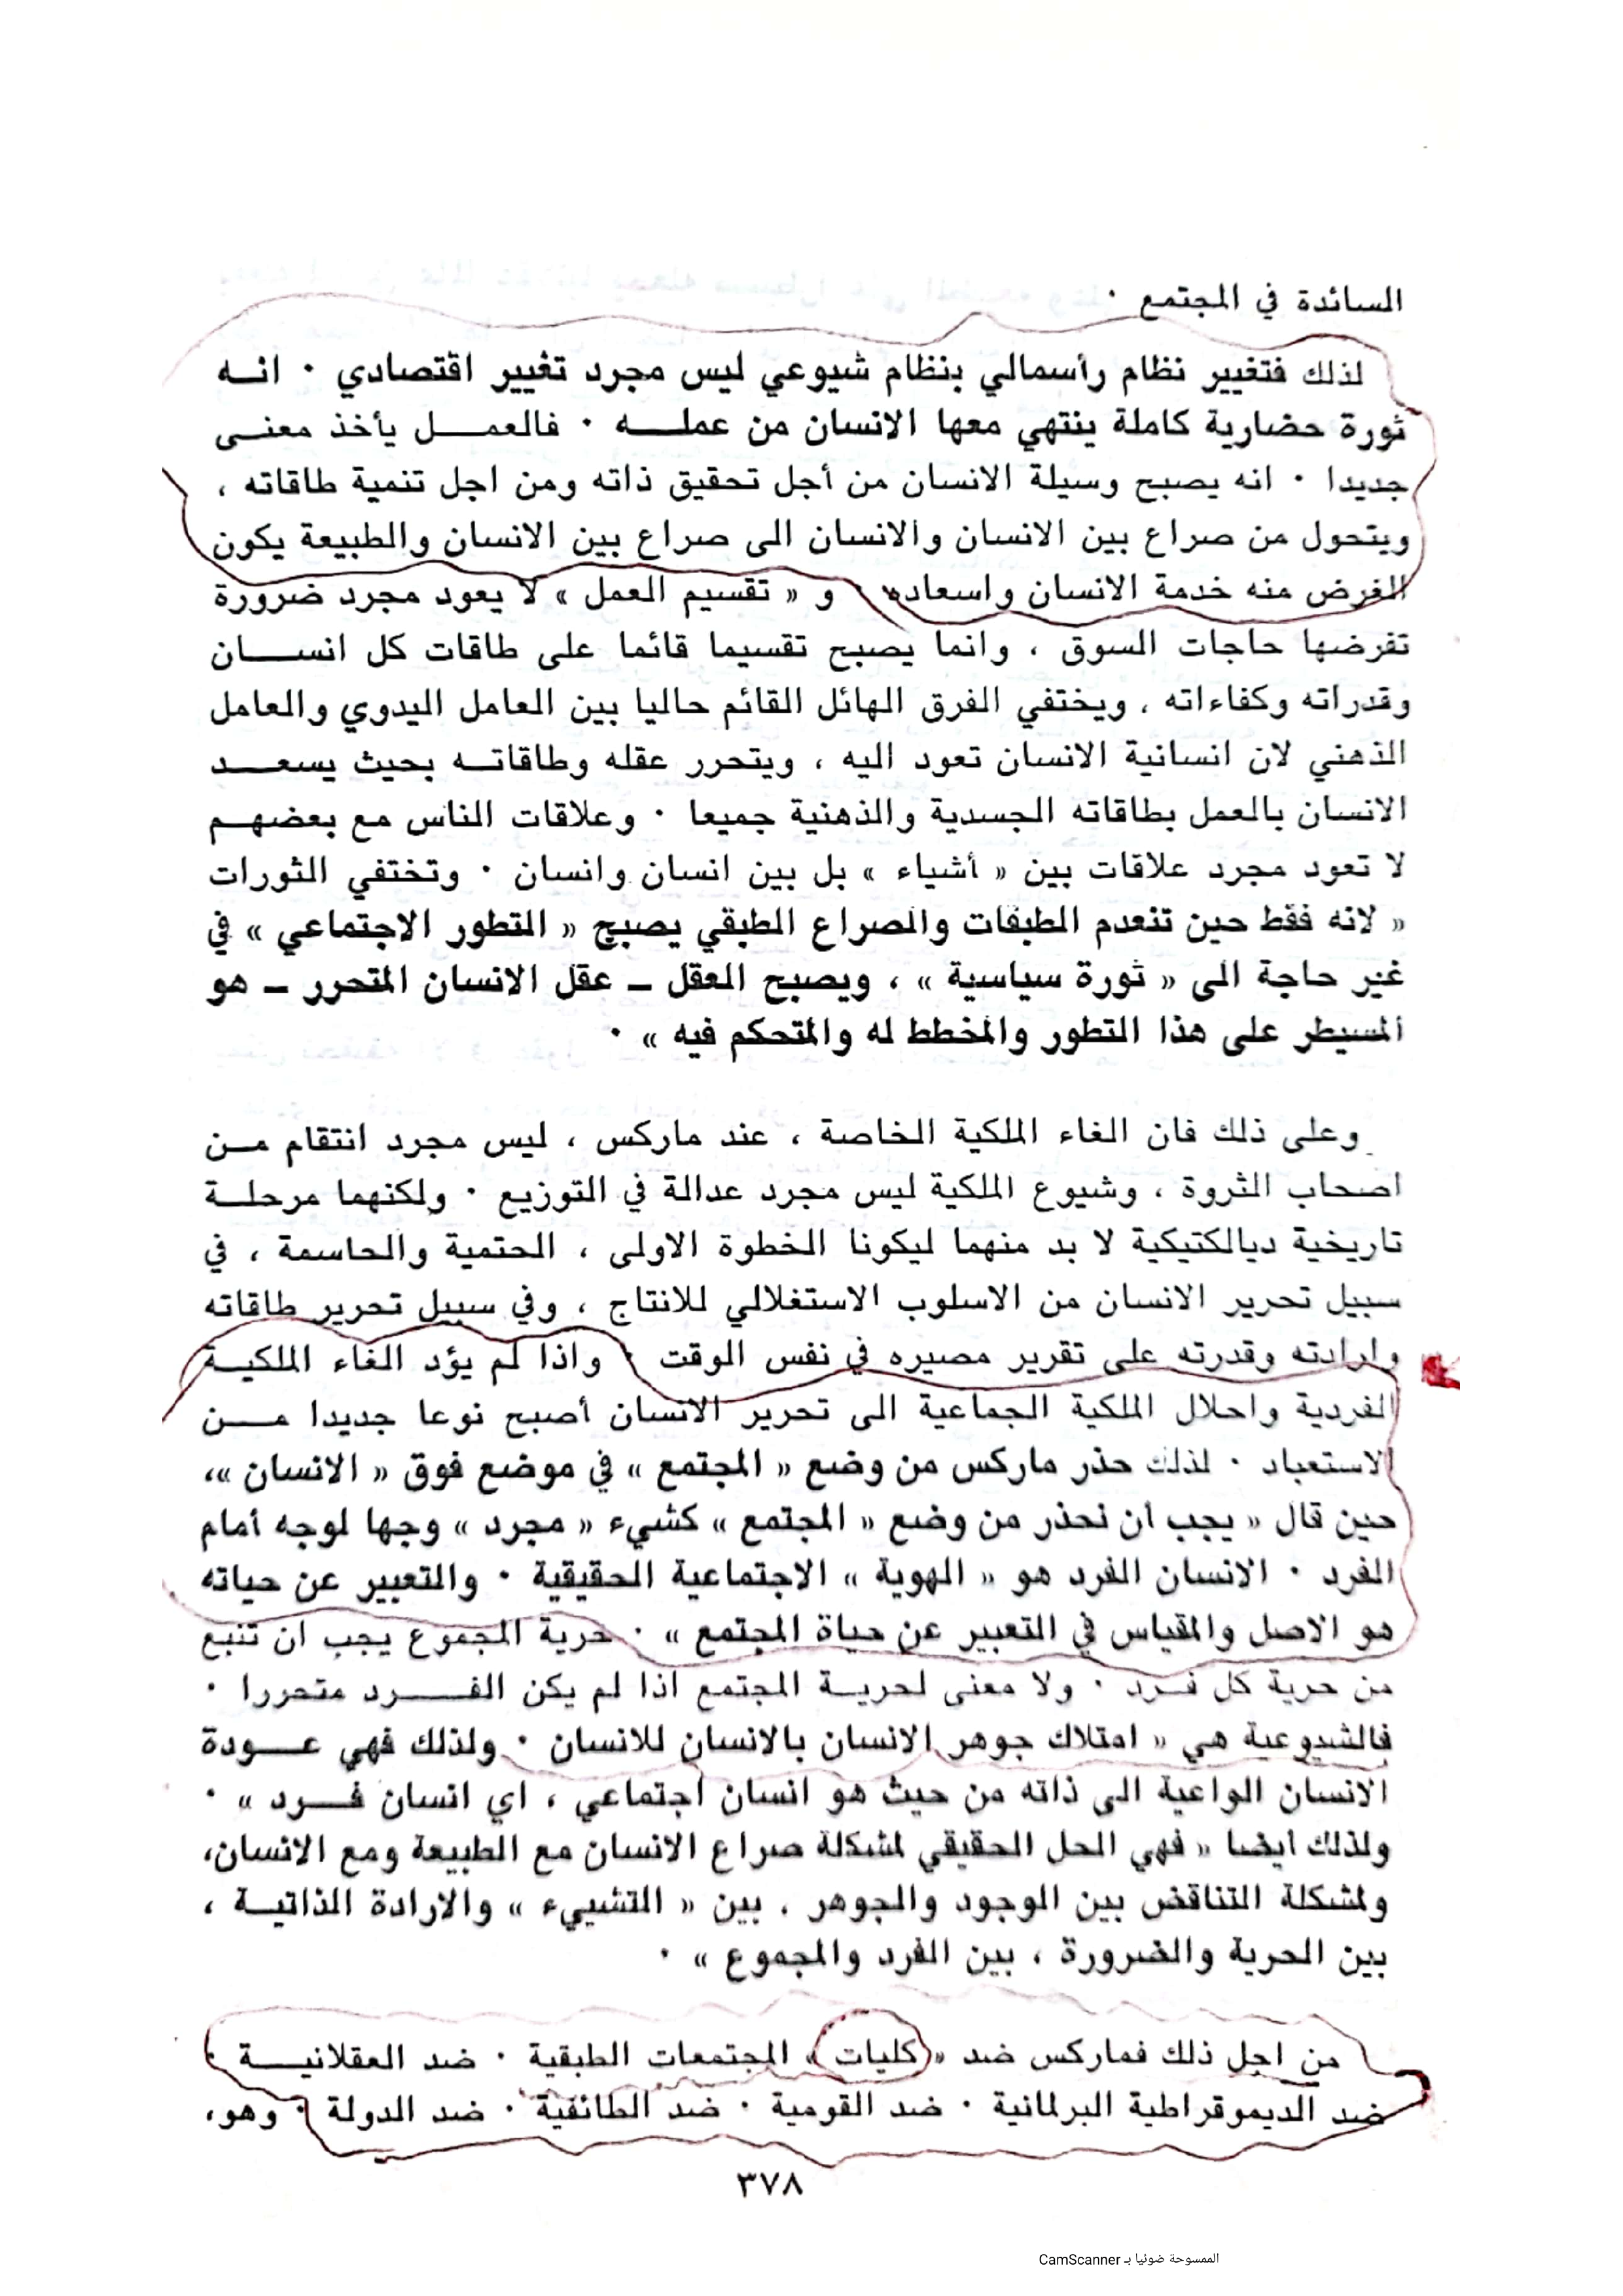 السائدة في المجتمع ٠
لذلك فتغيير نظام رأسمالي بنظام شيوعي ليس مجرد تغيير اقتصادي ٠ انه
ثورة حضارية كاملة ينتهي معها الانسان من عمله ٠ فالعمل يأخذ معنى
جديدا ٠ انه يصبح وسيلة الانسان من أجل تحقيق ذاته ومن اجل تنمية طاقاته ،
ويتحول من صراع بين الانسان والانسان الى صراع بين الانسان والطبيعة يكون
الغرض منه خدمة الانسان واسعاده ٠ و « تقسيم العمل » لا يعود مجرد ضرورة
تفرضها حاجات السوق ، وانما يصبح تقسيما قائما على طاقات كل انسان
وقدراته وكفاءاته ، ويختفي الفرق الهائل القائم حاليا بين العامل اليدوي والعامل
الذهني لان انسانية الانسان تعود اليه ، ويتحرر عقله وطاقاته بحيث يسعد
الانسان بالعمل بطاقاته الجسدية والذهنية جميعا ٠ وعلاقات الناس مع بعضهم
لا تعود مجرد علاقات بين « أشياء » بل بين انسان وانسان ٠ وتختفي الثورات
« لانه فقط حين تنعدم الطبقات والصراع الطبقي يصبح « التطور الاجتماعي » في
غير حاجة الى « ثورة سياسية » ، ويصبح العقل ـ عقل الانسان المتحرر ـ هو
المسيطر على هذا التطور والمخطط له والمتحكم فيه » ٠
وعلى ذلك فان الغاء الملكية الخاصة ، عند ماركس ، ليس مجرد انتقام من
اصحاب الثروة ، وشيوع الملكية ليس مجرد عدالة في التوزيع ٠ ولكنهما مرحلة
تاريخية ديالكتيكية لا بد منهما ليكونا الخطوة الاولى ، الحتمية والحاسمة ، في
سبيل تحرير الانسان من الاسلوب الاستغلالي للانتاج ، وفي سبيل تحرير طاقاته
وارادته وقدرته على تقرير مصيره في نفس الوقت ٠ واذا لم يؤد الغاء الملكية
الفردية واحلال الملكية الجماعية الى تحرير الانسان أصبح نوعا جديدا من
الاستعباد ٠ لذلك حذر ماركس من وضع « المجتمع » في موضع فوق « الانسان »،
حين قال « يجب ان نحذر من وضع « المجتمع » كشيء « مجرد » وجها لوجه أمام
الفرد ٠ الانسان الفرد هو « الهوية » الاجتماعية الحقيقية ٠ والتعبير عن حياته
هو الاصل والمقياس في التعبير عن حياة المجتمع » ٠ حرية المجموع يجب ان تنبع
من حرية كل فرد ٠ ولا معنى لحرية المجتمع اذا لم يكن الفرد متحررا ٠
فالشيوعية هي « امتلاك جوهر الانسان بالانسان للانسان ٠ ولذلك فهي عودة
الانسان الواعية الى ذاته من حيث هو انسان اجتماعي ، اي انسان فرد » ٠
ولذلك ايضا « فهي الحل الحقيقي لمشكلة صراع الانسان مع الطبيعة ومع الانسان،
ولمشكلة التناقض بين الوجود والجوهر ، بين « التشييء » والارادة الذاتية ،
بين الحرية والضرورة ، بين الفرد والمجموع » ٠
من اجل ذلك فماركس ضد « كليات » المجتمعات الطبقية ٠ ضد العقلانية ٠
ضد الديموقراطية البرلمانية ٠ ضد القومية ٠ ضد الطائفية ٠ ضد الدولة ٠ وهو،
٣٧٨
الممسوحة ضوئيا بـ CamScanner